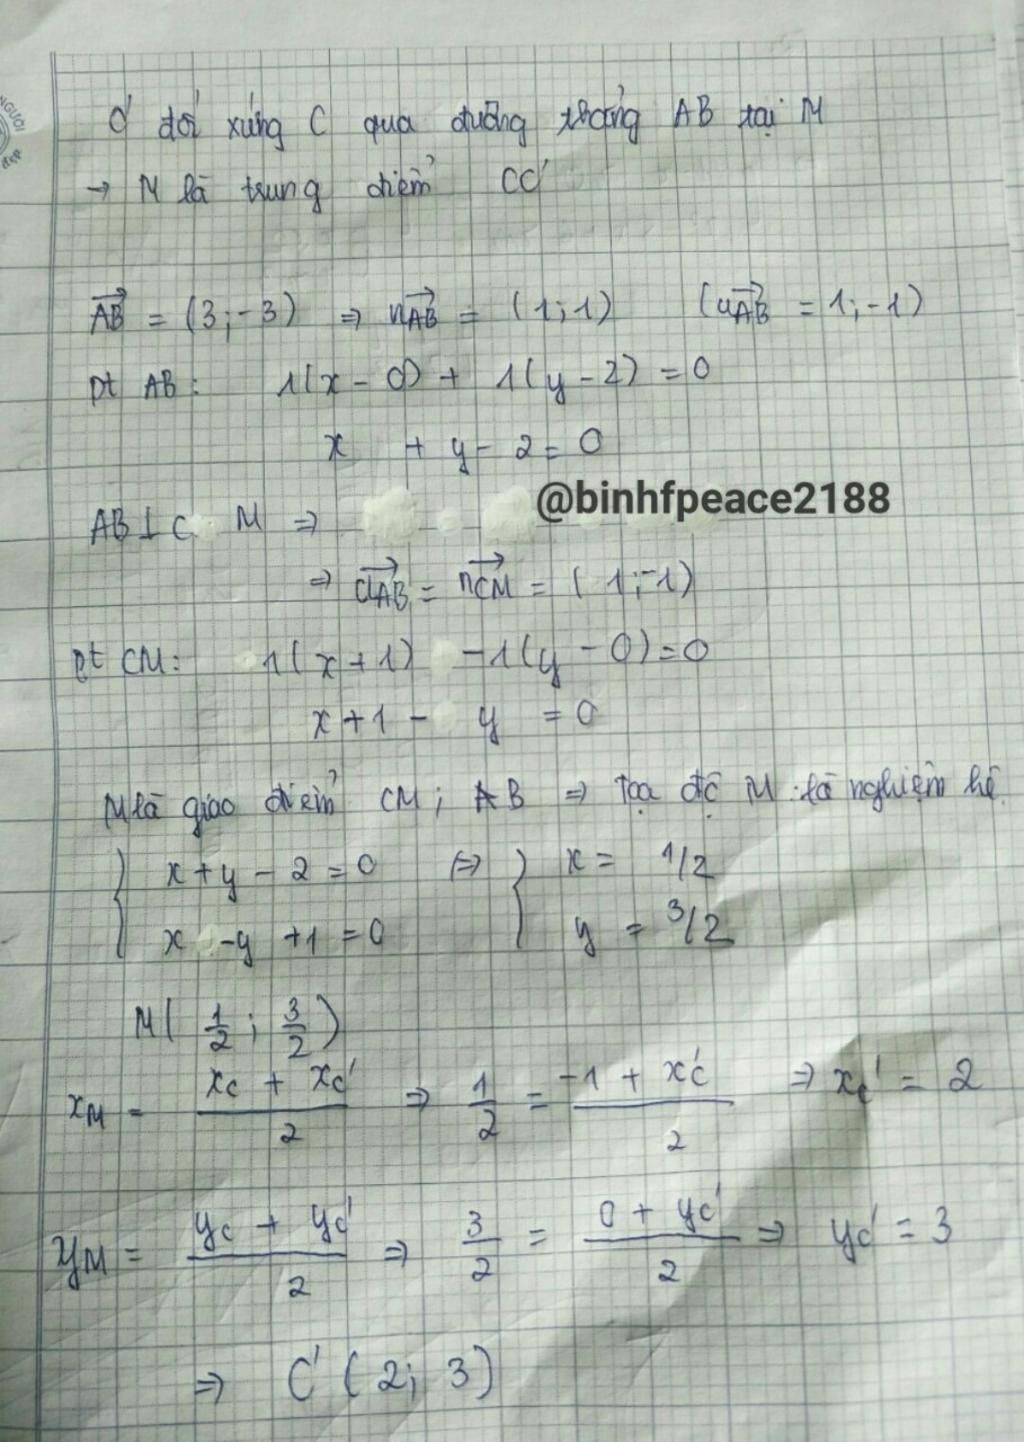 NGƯỜI
đẹp
C' đối xứng C qua đường thẳng AB tại M
→ M là trung điểm CC'
\overrightarrow{AB} = (3;-3) ⇒ n\overrightarrow{AB} = (1;1) (u\overrightarrow{AB} = 1;-1)
Pt AB: 1(x - 0) + 1(y - 2) = 0
x + y - 2 = 0
@binhfpeace2188
AB ⊥ C M ⇒
⇒ \overrightarrow{AB} = n\overrightarrow{CM} = (1;-1)
Pt CM: 1(x+1) -1(y - 0) = 0
x + 1 - y = 0
M là giao điểm CM; AB ⇒ Tọa độ M là nghiệm hệ
{ x + y - 2 = 0 ⇔ { x = 1/2
x - y + 1 = 0 y = 3/2
M( 1/2 ; 3/2 )
xM = (xC + xC')/2 ⇒ 1/2 = (-1 + xC')/2 ⇒ xC' = 2
yM = (yC + yC')/2 ⇒ 3/2 = (0 + yC')/2 ⇒ yC' = 3
⇒ C' (2; 3)